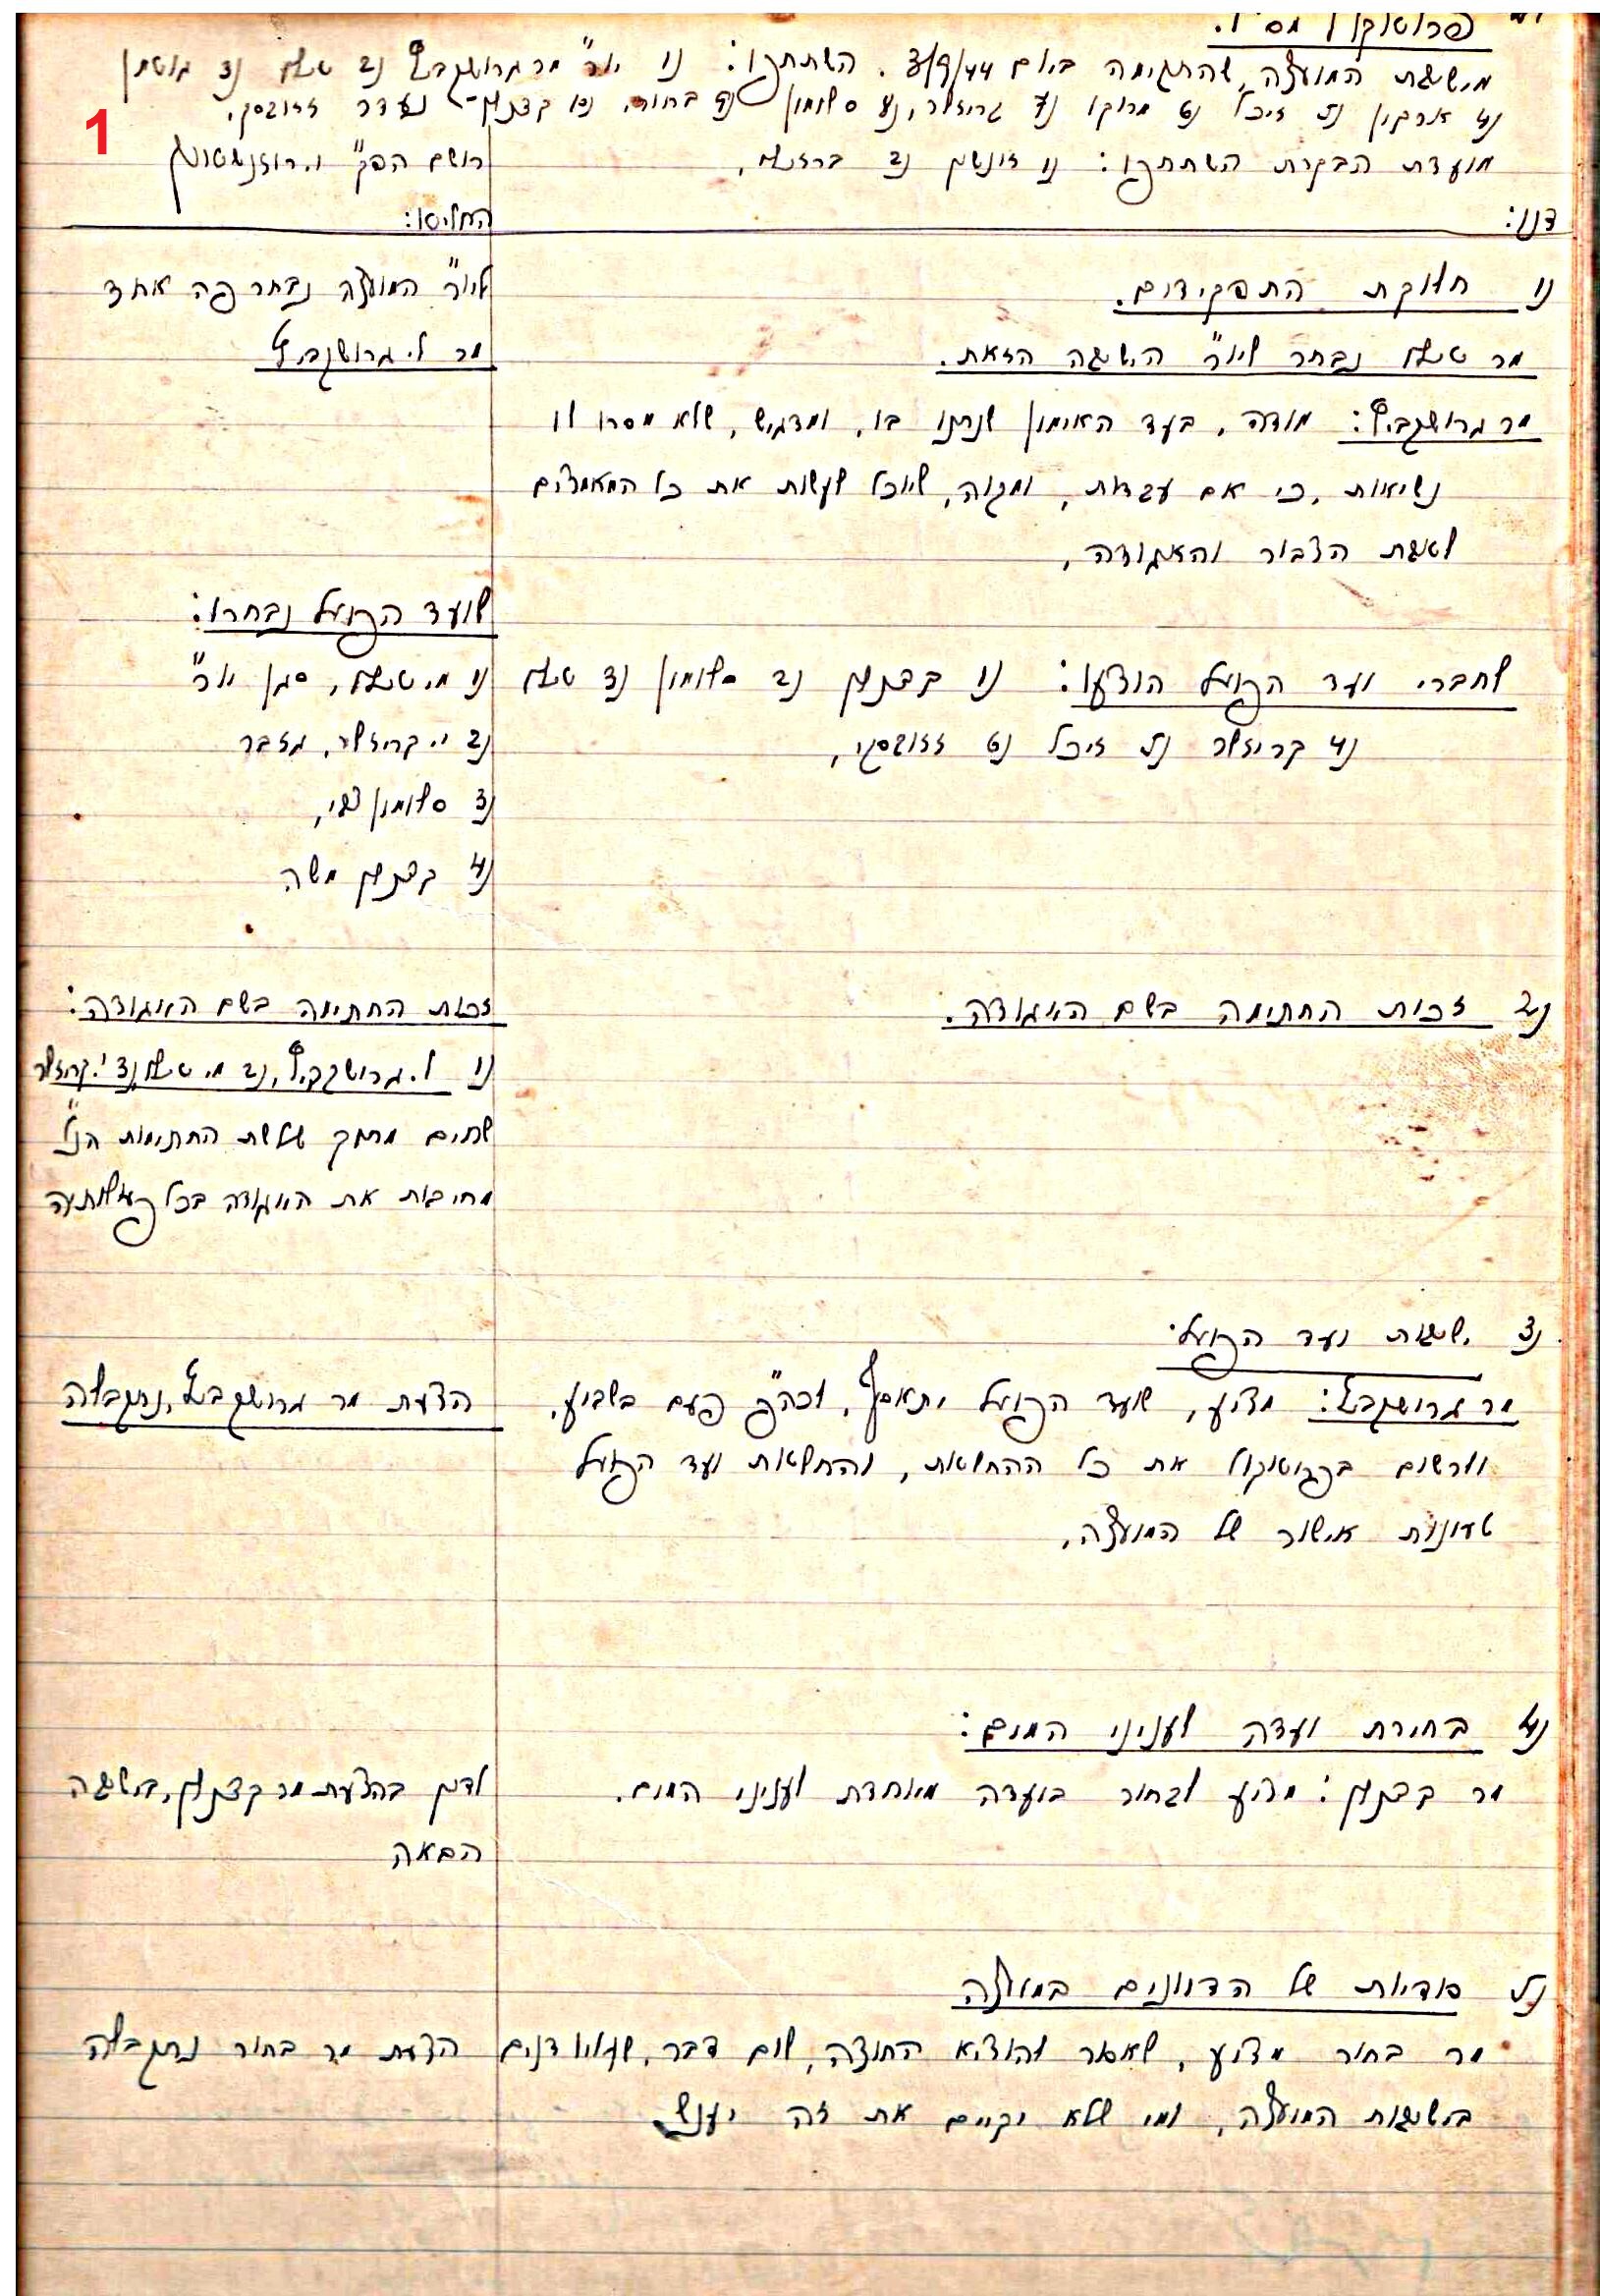 פרוטוקול מס' 1.
מישיבת המועצה, שהתקימה ביום 3/9/44. השתתפו: 1) יו"ר מר גרושקביץ 2) 3) גוטמן
4) 5) זיכל 6) מרוקו 7) קריזלר, 8) סלומון 9) בחור, 10) קפצקי - נעדר
מועדת הבקרת השתתפו: 1) 2)
רושם הפק'
1
דנו:
החליטו:
1) חלוקת התפקידים.
מר נבחר ליו"ר הישיבה הזאת.
מר גרושקביץ: מודה, בעד האימון שנתנו בו, ומדגיש, שלא מסרו לו
נשיאות, כי אם עבדות, ומקוה, שיוכל לעשות את כל המאמצים
לטובת הצבור והאגודה,
ליו"ר המועצה נבחר פה אחד
מר ל. גרושקביץ
לחברי ועד הפועל הוצעו: 1) 2) סלומון 3)
4) קריזלר 5) זיכל 6)
לועד הפועל נבחרו:
1) מ. סגן יו"ר
2) י. קריזלר, גזבר
3) סלומון צבי,
4) משה
2) זכות החתימה בשם האגודה.
זכות החתימה בשם האגודה:
1) ל. גרושקביץ, 2) מ. 3) י. קריזלר
שתים מתוך שלשת החתימות הנ"ל
מחיבות את האגודה בכל פעולותיה
3) ישיבות ועד הפועל.
מר גרושקביץ: מציע, שועד הפועל יתאסף, לכה"פ פעם בשבוע,
וירשום בפרוטוקול את כל ההחלטות, והחלטות ועד הפועל
טעונות אישור של המועצה,
הצעת מר גרושקביץ, נתקבלה
4) בחירת ועדה לעניני המים:
מר מציע לבחור בועדה מיוחדת לעניני המים.
לדון בהצעת מר בישיבה
הבאה
5) סודיות של הדיונים במועצה
מר בחור מציע, שאסור להוציא החוצה, שום דבר, שעליו דנים
בישיבות המועצה, ומי שלא יקיים את זה יענש
הצעת מר בחור נתקבלה